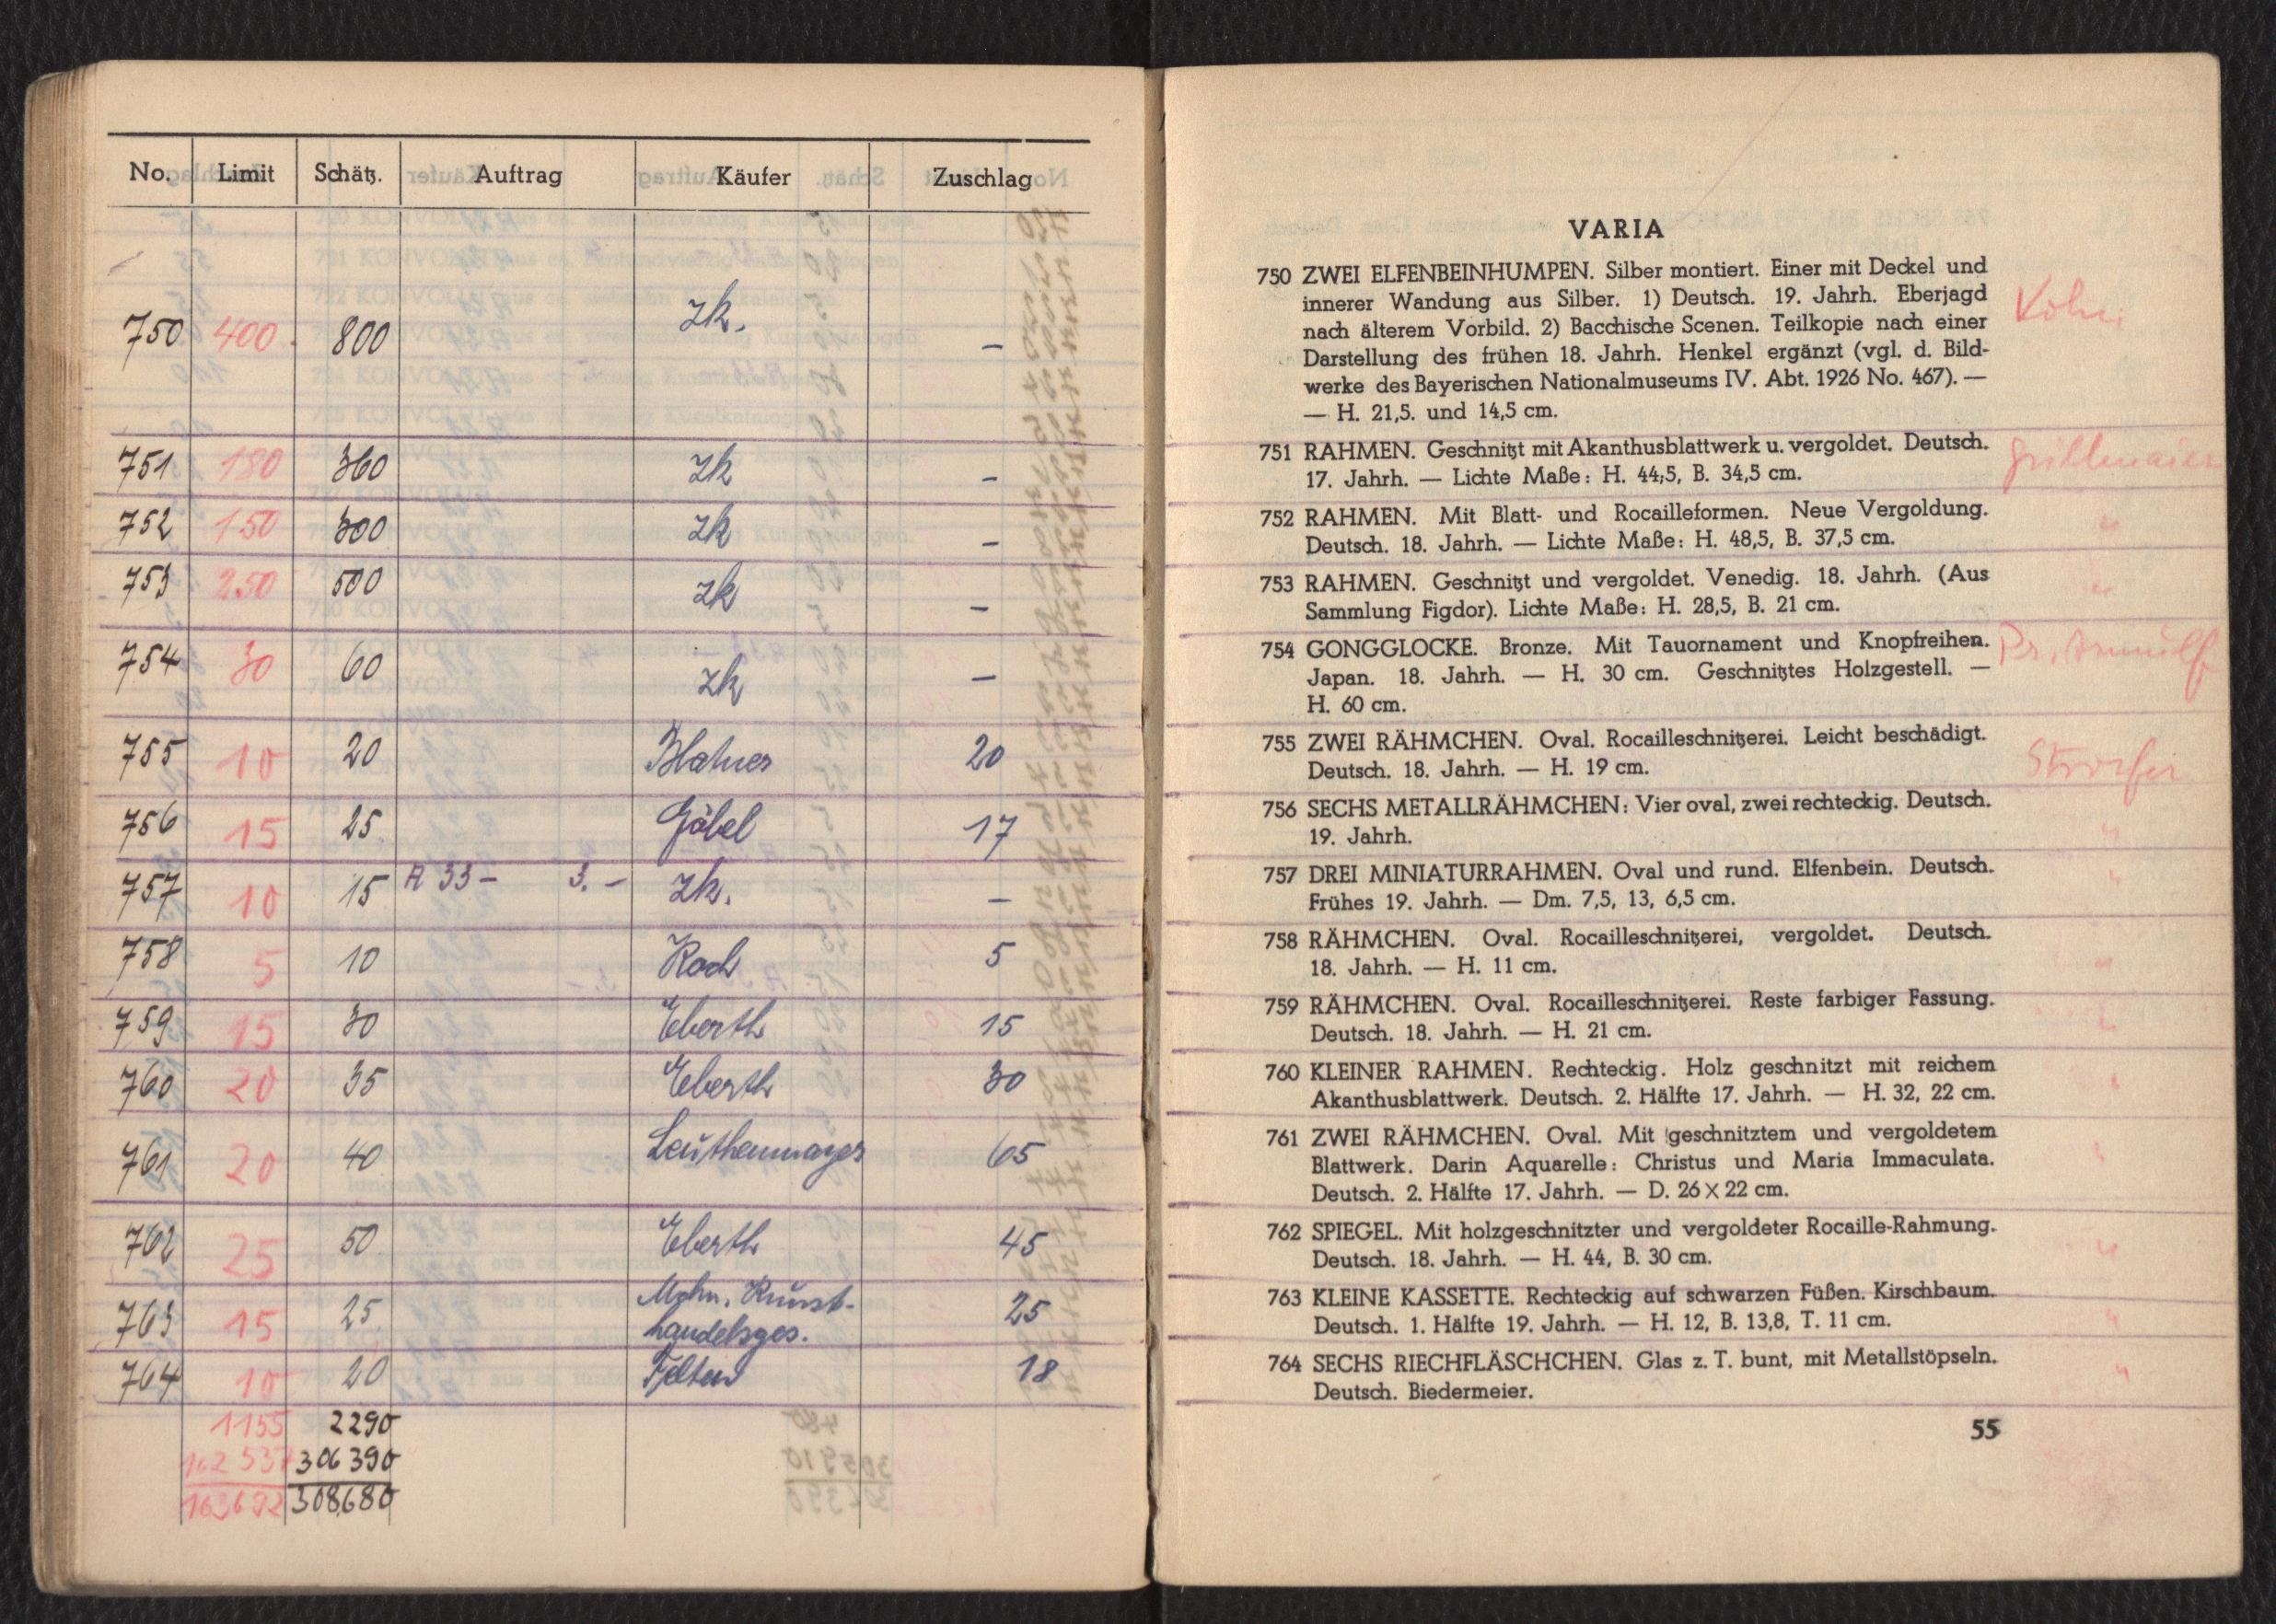 No. Limit Schätz. Auftrag Käufer Zuschlag
750 400 800 zk. –
751 180 360 zk –
752 150 300 zk –
753 250 500 zk –
754 30 60 zk –
755 10 20 20
756 15 25 Göbel 17
757 10 15 A 33 – 3. – zk. –
758 5 10 Koch 5
759 15 30 Eberth 15
760 20 35 Eberth 30
761 20 40 65
762 25 50 Eberth 45
763 15 25 Mchn. Kunst-
handelsges. 25
764 10 20 18
1155 2290
162 537 306 390
163692 308,680
VARIA
750 ZWEI ELFENBEINHUMPEN. Silber montiert. Einer mit Deckel und
innerer Wandung aus Silber. 1) Deutsch. 19. Jahrh. Eberjagd
nach älterem Vorbild. 2) Bacchische Scenen. Teilkopie nach einer
Darstellung des frühen 18. Jahrh. Henkel ergänzt (vgl. d. Bild-
werke des Bayerischen Nationalmuseums IV. Abt. 1926 No. 467). —
— H. 21,5. und 14,5 cm.
751 RAHMEN. Geschnitzt mit Akanthusblattwerk u. vergoldet. Deutsch.
17. Jahrh. — Lichte Maße: H. 44,5, B. 34,5 cm.
752 RAHMEN. Mit Blatt- und Rocailleformen. Neue Vergoldung. "
Deutsch. 18. Jahrh. — Lichte Maße: H. 48,5, B. 37,5 cm.
753 RAHMEN. Geschnitzt und vergoldet. Venedig. 18. Jahrh. (Aus "
Sammlung Figdor). Lichte Maße: H. 28,5, B. 21 cm.
754 GONGGLOCKE. Bronze. Mit Tauornament und Knopfreihen.
Japan. 18. Jahrh. — H. 30 cm. Geschnitztes Holzgestell. —
H. 60 cm.
755 ZWEI RÄHMCHEN. Oval. Rocailleschnitzerei. Leicht beschädigt.
Deutsch. 18. Jahrh. — H. 19 cm.
756 SECHS METALLRÄHMCHEN: Vier oval, zwei rechteckig. Deutsch. "
19. Jahrh.
757 DREI MINIATURRAHMEN. Oval und rund. Elfenbein. Deutsch. "
Frühes 19. Jahrh. — Dm. 7,5, 13, 6,5 cm.
758 RÄHMCHEN. Oval. Rocailleschnitzerei, vergoldet. Deutsch. "
18. Jahrh. — H. 11 cm.
759 RÄHMCHEN. Oval. Rocailleschnitzerei. Reste farbiger Fassung. "
Deutsch. 18. Jahrh. — H. 21 cm.
760 KLEINER RAHMEN. Rechteckig. Holz geschnitzt mit reichem "
Akanthusblattwerk. Deutsch. 2. Hälfte 17. Jahrh. — H. 32, 22 cm.
761 ZWEI RÄHMCHEN. Oval. Mit geschnitztem und vergoldetem "
Blattwerk. Darin Aquarelle: Christus und Maria Immaculata.
Deutsch. 2. Hälfte 17. Jahrh. — D. 26 × 22 cm.
762 SPIEGEL. Mit holzgeschnitzter und vergoldeter Rocaille-Rahmung. "
Deutsch. 18. Jahrh. — H. 44, B. 30 cm.
763 KLEINE KASSETTE. Rechteckig auf schwarzen Füßen. Kirschbaum. "
Deutsch. 1. Hälfte 19. Jahrh. — H. 12, B. 13,8, T. 11 cm.
764 SECHS RIECHFLÄSCHCHEN. Glas z. T. bunt, mit Metallstöpseln. "
Deutsch. Biedermeier.
55